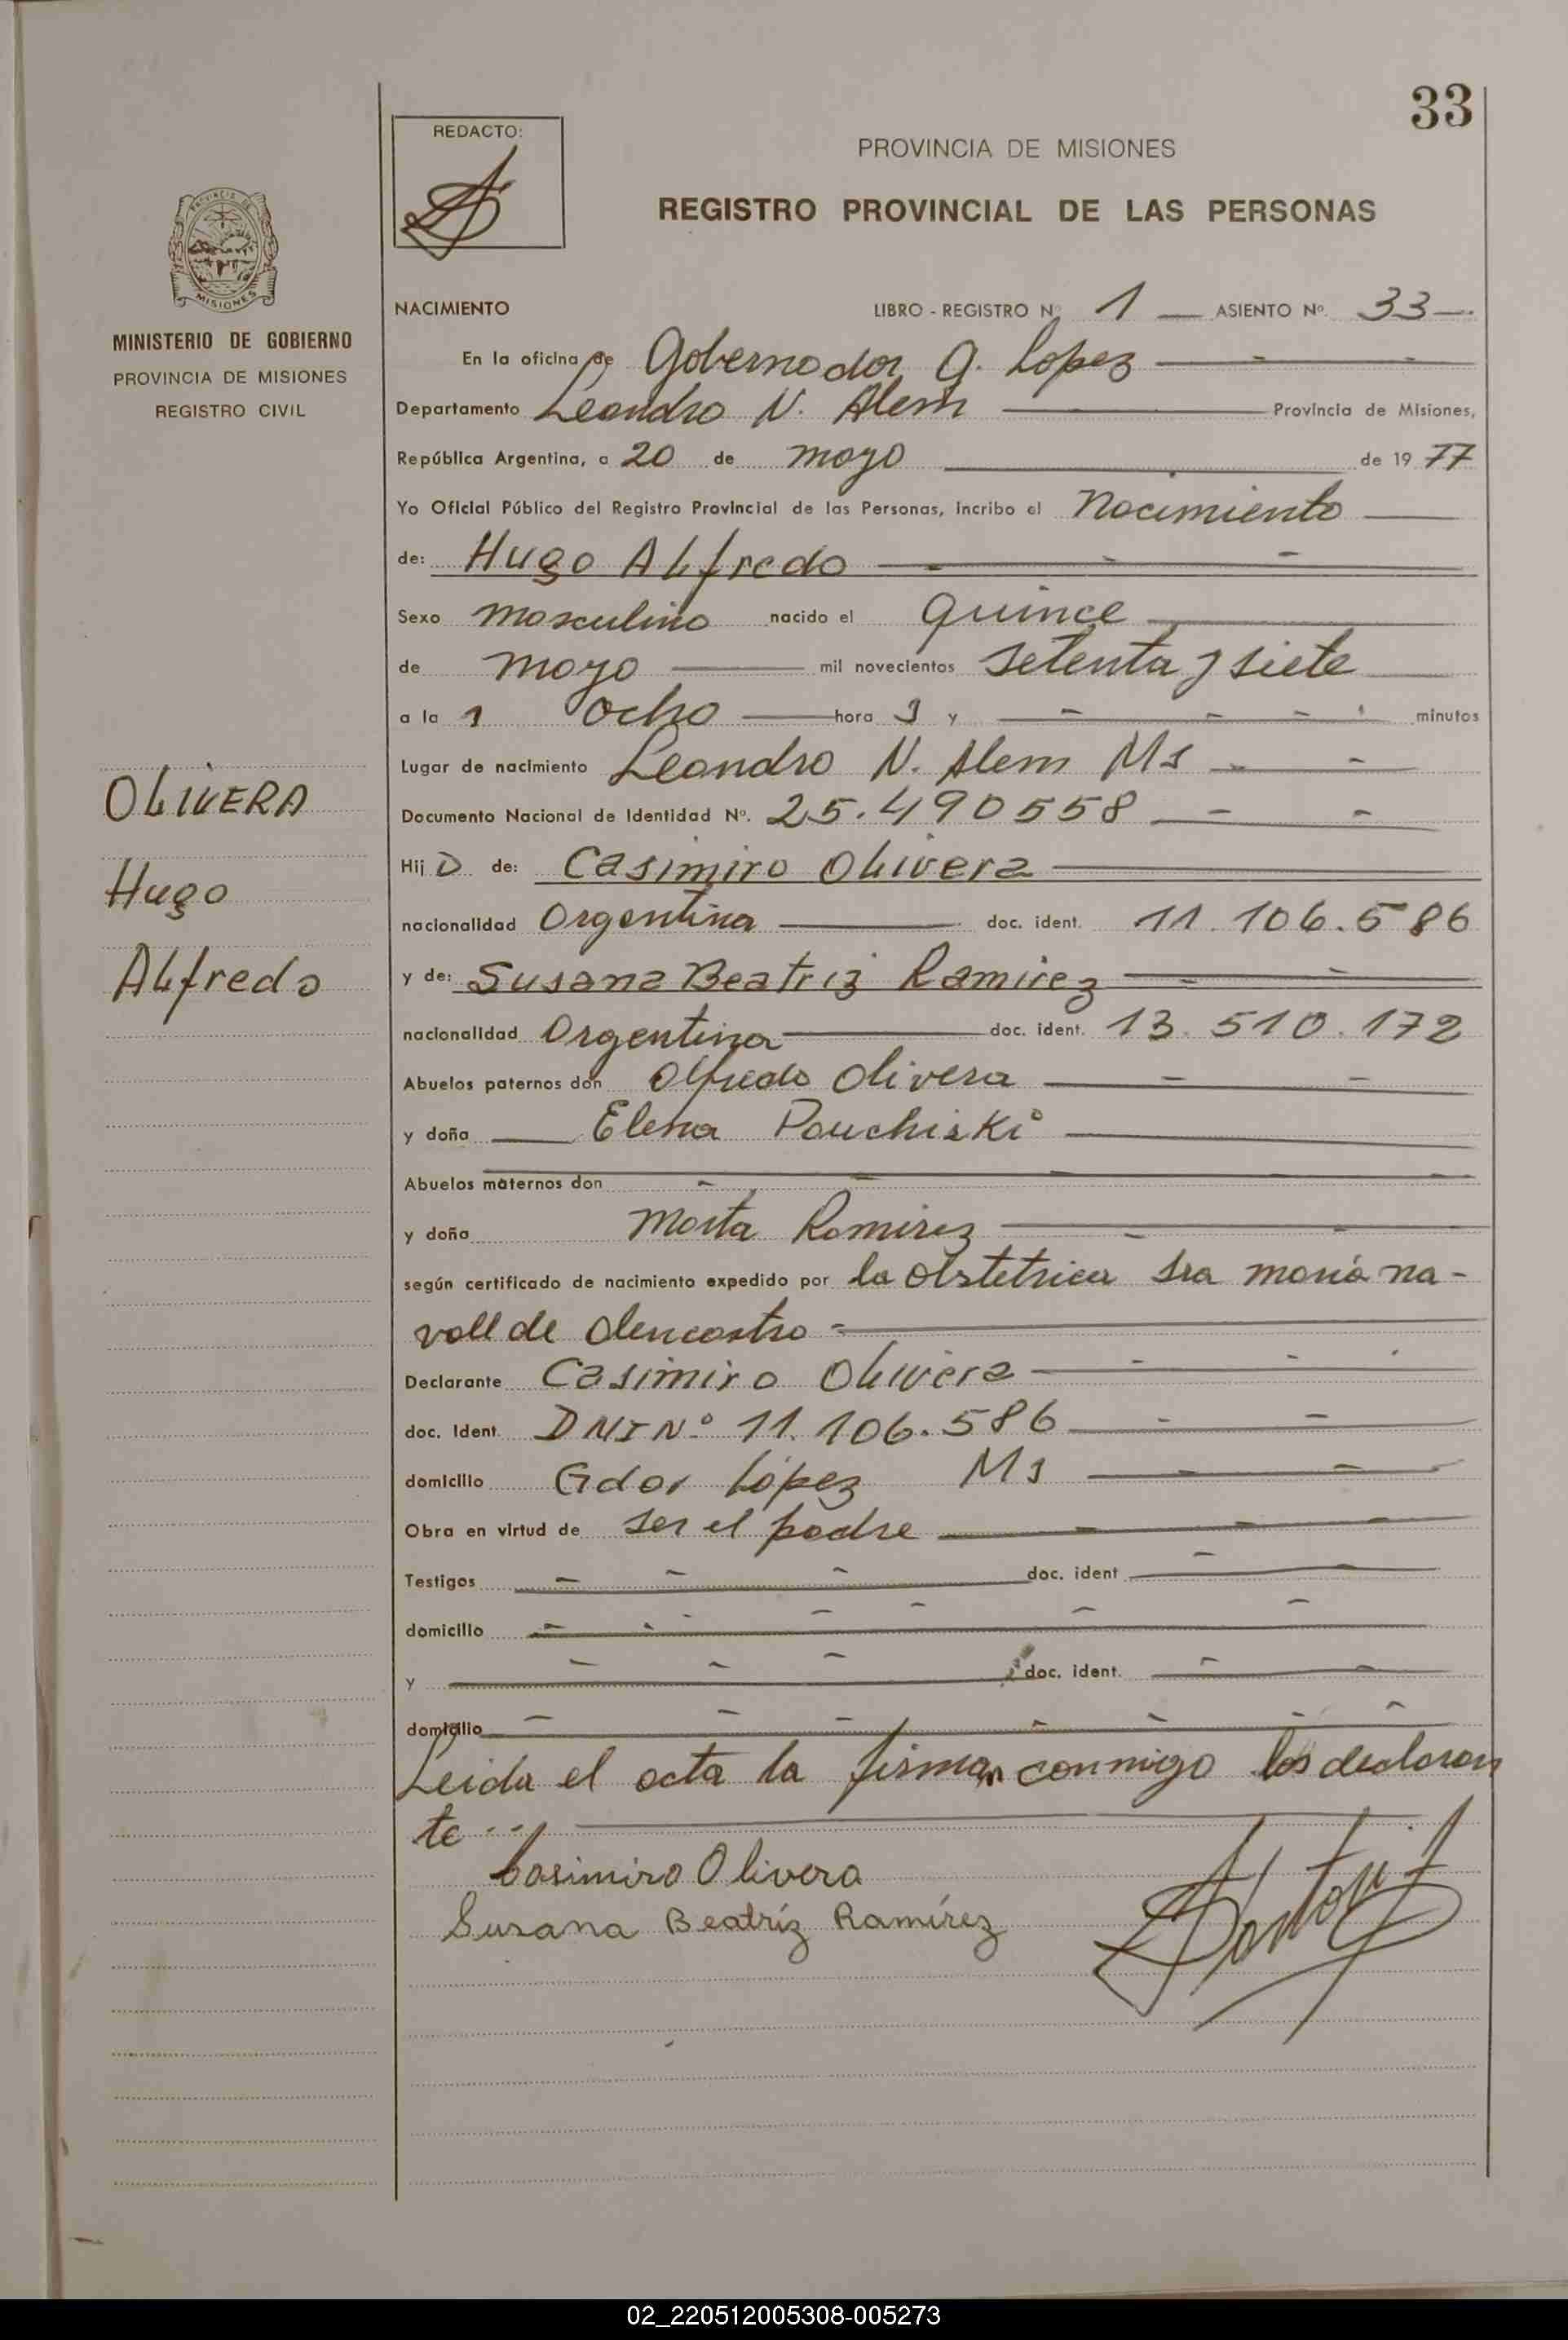 33
REDACTO:
PROVINCIA DE MISIONES
REGISTRO PROVINCIAL DE LAS PERSONAS
MINISTERIO DE GOBIERNO
PROVINCIA DE MISIONES
REGISTRO CIVIL
OLIVERA
Hugo
ALfredo
NACIMIENTO LIBRO - REGISTRO Nº 1 — ASIENTO Nº. 33 —
En la oficina de Gobernador G. Lopez
Departamento Leandro N. Alem Provincia de Misiones,
República Argentina, a 20 de mayo de 19 77
Yo Oficial Público del Registro Provincial de las Personas, incribo el Nacimiento
de: Hugo ALfredo
Sexo masculino nacido el quince
de mayo mil novecientos setenta y siete
a la s ocho hora s y minutos
Lugar de nacimiento Leandro N. Alem Ms
Documento Nacional de Identidad Nº. 25.490558
Hij o de: Casimiro OLivera
nacionalidad Argentina doc. ident. 11.106.586
y de: Susana Beatriz Ramirez
nacionalidad Argentina doc. ident. 13.510.172
Abuelos paternos don Alfredo Olivera
y doña Elena
Abuelos maternos don
y doña Marta Ramirez
según certificado de nacimiento expedido por la Obstetrica Sra maria na-
de
Declarante Casimiro OLivera
doc. Ident. DNI Nº 11.106.586
domicilio Gdor López Ms
Obra en virtud de ser el padre
Testigos doc. ident
domicilio
y doc. ident.
domicilio
Leida el acta la firman conmigo los declaran
te
Casimiro Olivera
Susana Beatríz Ramírez
02_220512005308-005273